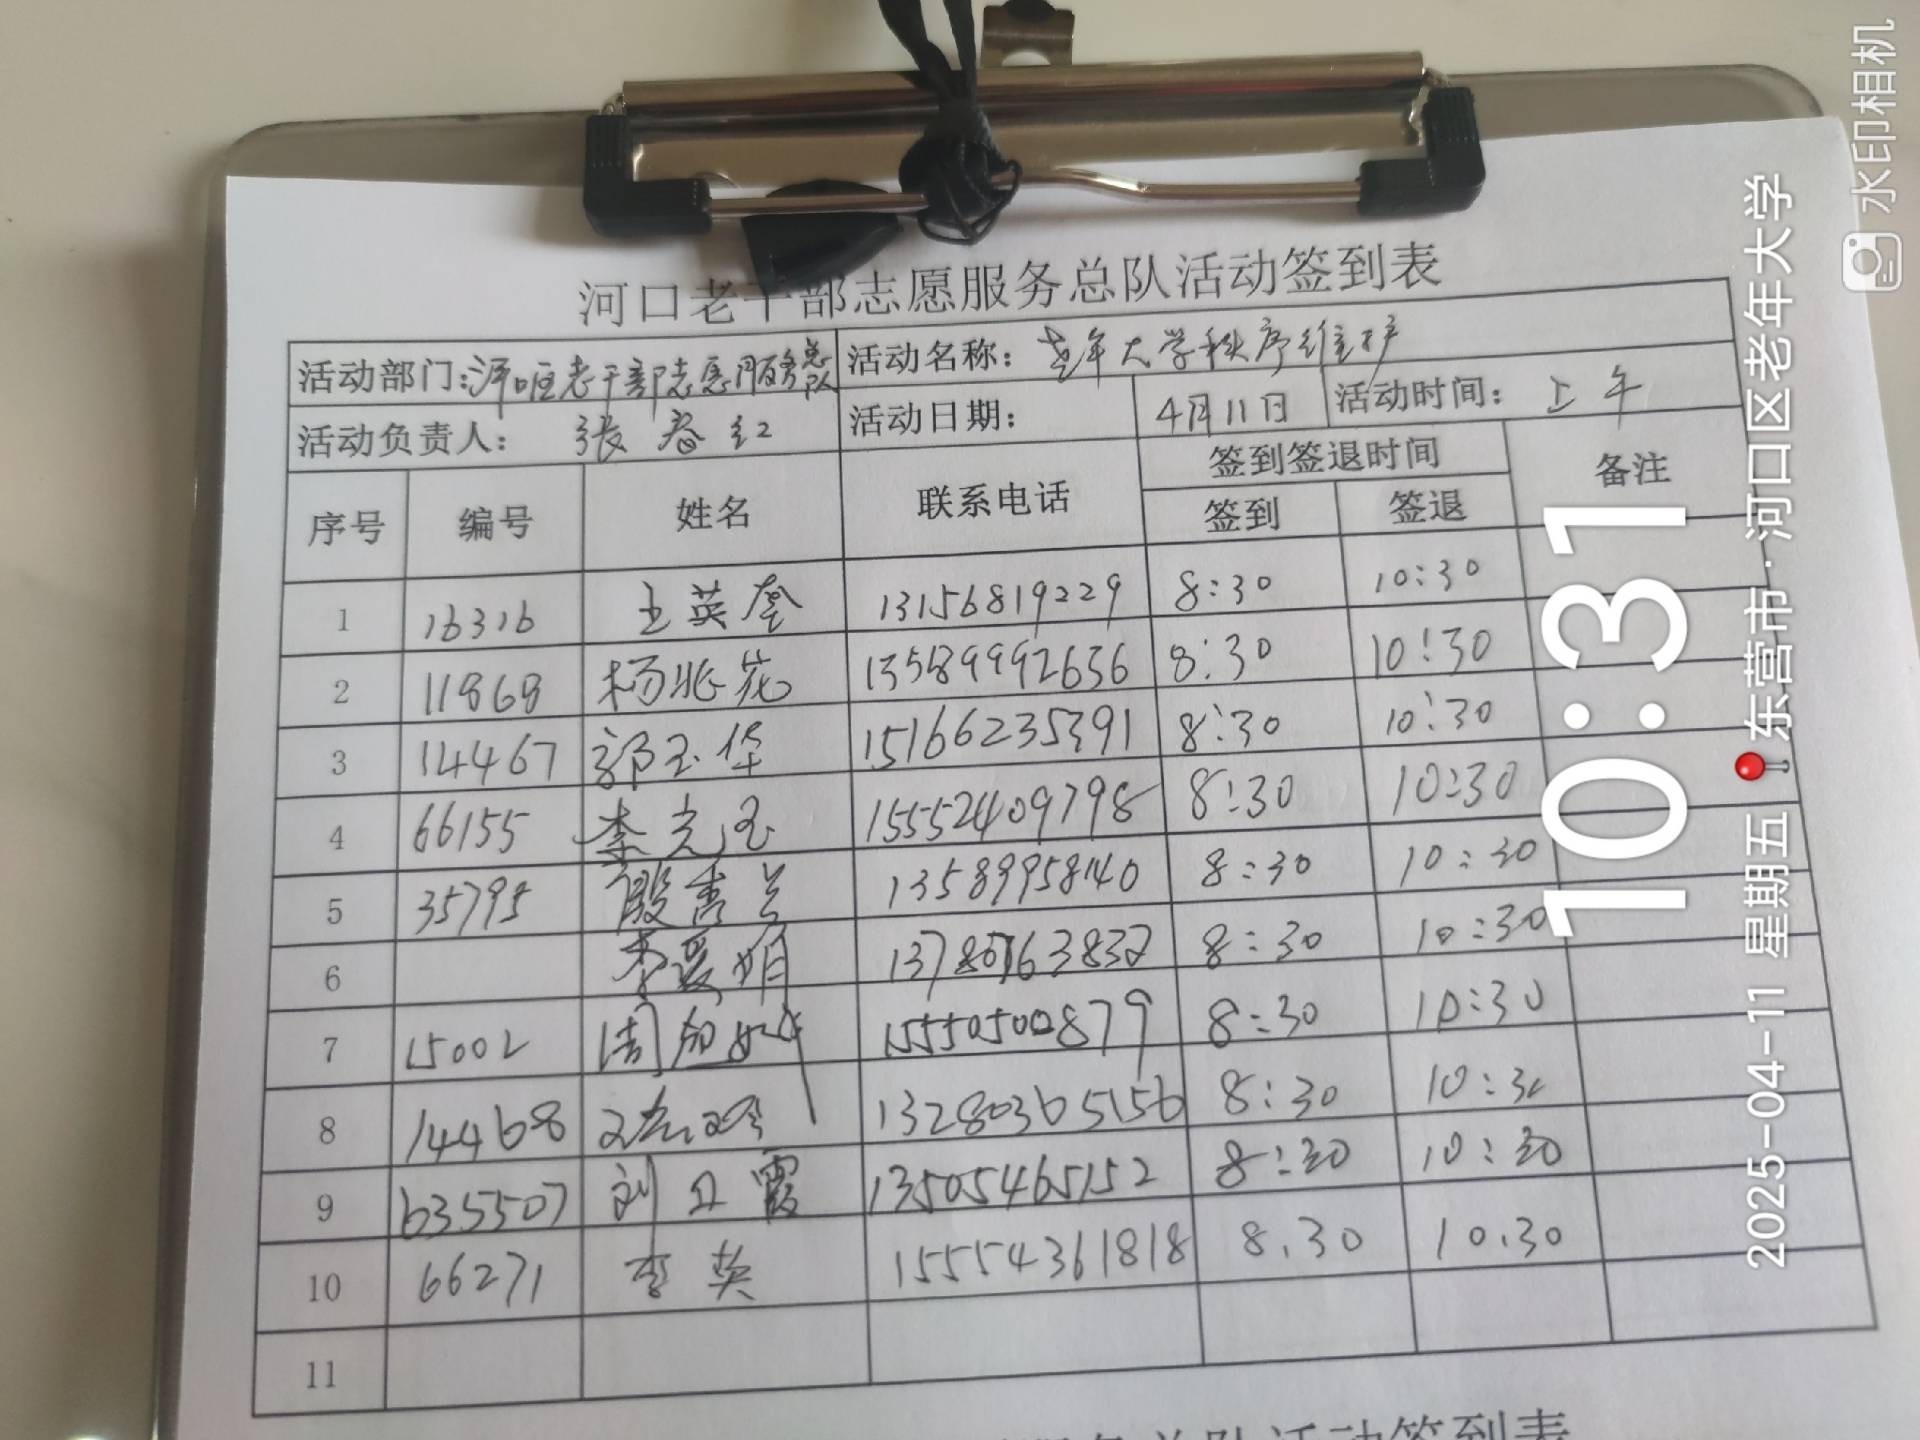 河口老干部志愿服务总队活动签到表
活动部门: 老干部志愿服务总队 活动名称: 老年大学秩序维护
活动负责人: 张春红 活动日期: 4月11日 活动时间: 上午
序号 编号 姓名 联系电话 签到签退时间 备注
签到 签退
1 16316 王英奎 13156819229 8:30 10:30
2 11868 杨兆花 13589992636 8:30 10:30
3 14467 郭玉华 15166235391 8:30 10:30
4 66155 李光玉 15552409798 8:30 10:30
5 35795 殷秀兰 13589958140 8:30 10:30
6 李爱娟 8:30 10:30
7 15002 周 15550500879 8:30 10:30
8 14468 13280365156 8:30 10:30
9 635507 刘卫霞 13505465152 8:30 10:30
10 66271 李英 15554361818 8.30 10.30
11
总队活动签到表
10:31
2025-04-11 星期五 东营市·河口区老年大学
水印相机